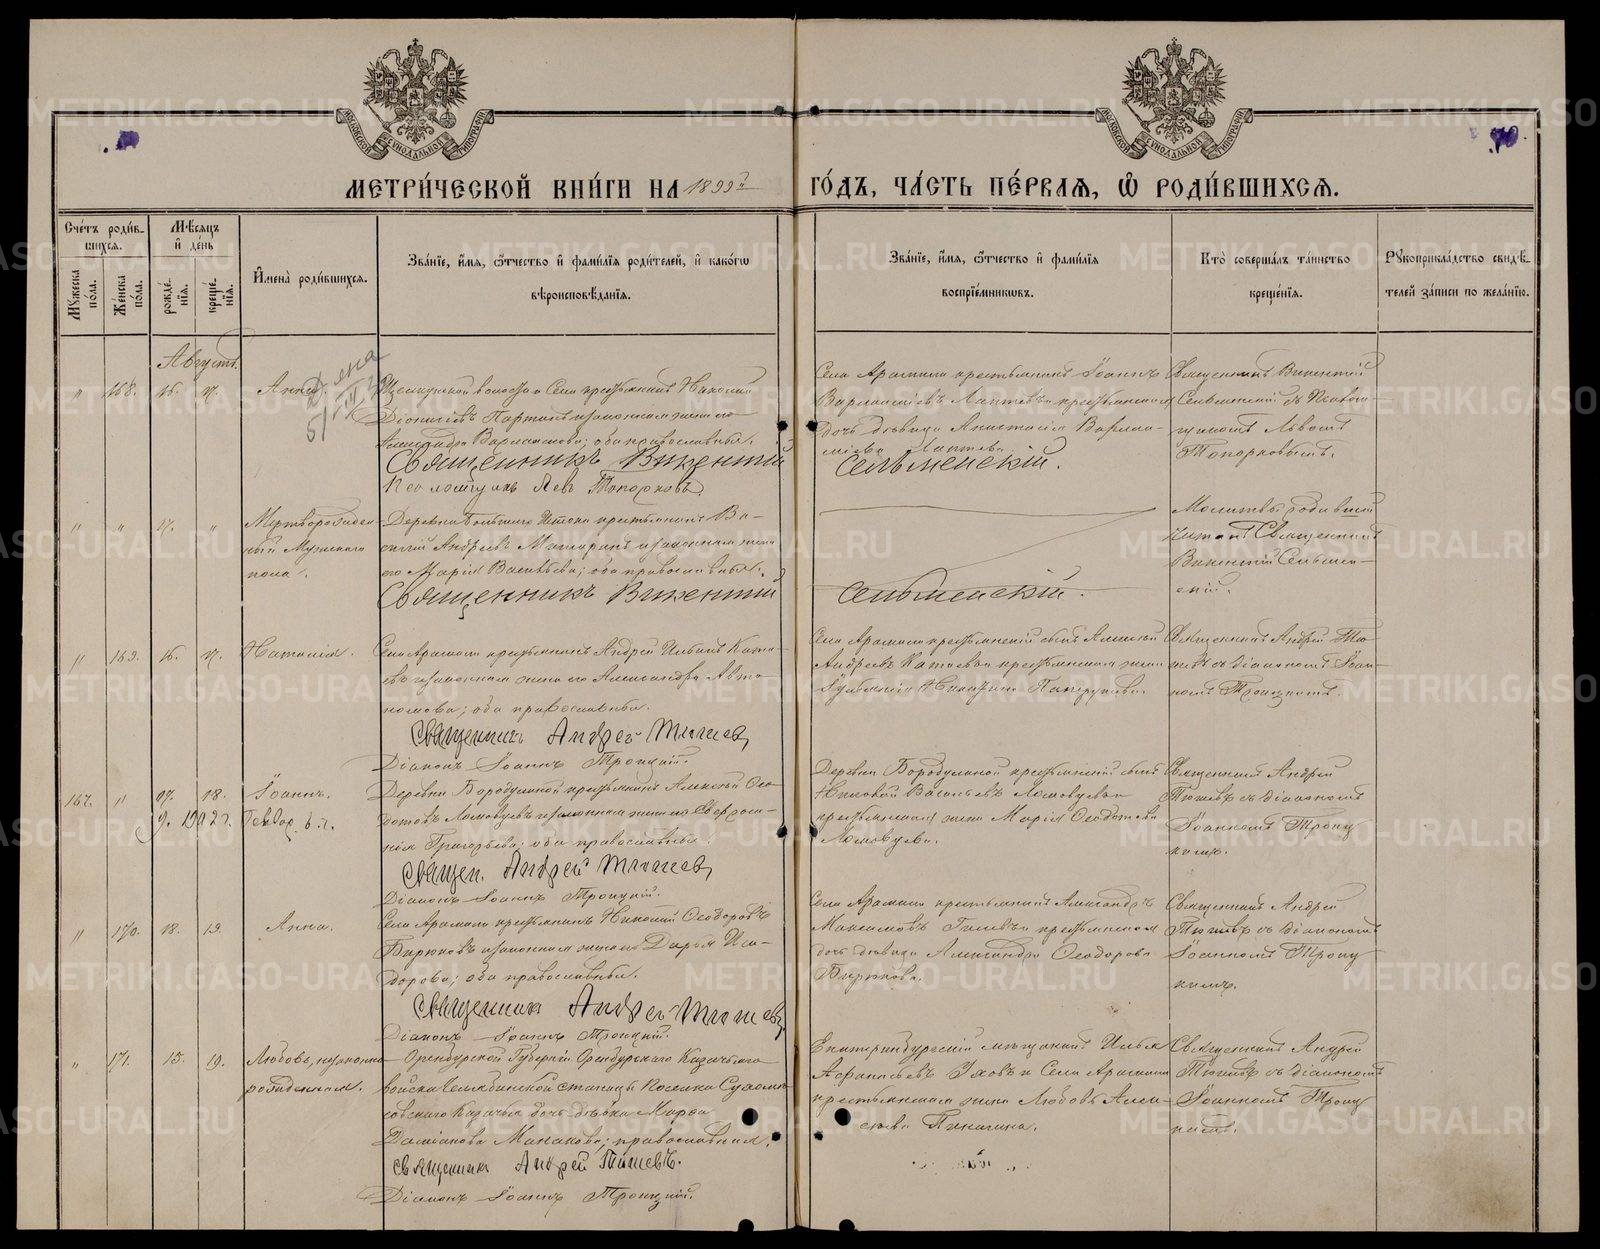 МОСКОВСКОЙ СѴНОДАЛЬНОЙ ТИПОГРАФІИ
МОСКОВСКОЙ СѴНОДАЛЬНОЙ ТИПОГРАФІИ
70
МЕТРИ́ЧЕСКОЙ КНИ́ГИ НА 1899й ГО́ДЪ, ЧА́СТЬ ПЕ́РВАЯ, Ѡ РОДИ́ВШИХСЯ.
Сче́тъ роди́в-
шихся.
Мужеска по́ла.
Же́нска по́ла.
Мѣ́сяцъ и де́нь
рожде́-нія.
креще́-нія.
Имена̀ роди́вшихся.
Зва́ніе, и́мя, ѻ҆́тчество и фами́лія роди́телей, и како́гѡ
вѣроисповѣ́данія.
Зва́ніе, и́мя, ѻ҆́тчество и фами́лія
воспріе́мникѡвъ.
Кто̀ соверша́лъ та́инство
креще́нія.
Рукоприкла́дство свидѣ́-
телей за́писи по жела́нію.
Августъ.
" 168. 16. 17. Анна.
крестьянинъ Николай
Діонисіевъ и законная жена его
Александра Варлаамова; оба православные.
Священникъ Викентій Сельменскій.
Псаломщикъ Левъ Топорковъ.
Села Арамили крестьянинъ Іоаннъ
Варлаамовъ Лаптевъ и крестьянская
дочь дѣвица Анастасія Варлаа-
мова Лаптева.
Священникъ Викентій
Сельменскій съ Псалом-
щикомъ Львомъ
Топорковымъ.
" " 17. " Мертворожден-
ный Мужскаго
пола.
Деревни Большаго Истока крестьянинъ Ва-
силій Андреевъ и законная жена
его Марія Васильева; оба православные.
Священникъ Викентій Сельменскій.
Молитвы родившей
читалъ Священникъ
Викентій Сельмен-
скій.
" 169. 16. 17. Наталія.
Села Арамили крестьянинъ Андрей Ильинъ Ката-
евъ и законная жена его Александра Авто-
номова; оба православные.
Священникъ Андрей Тюшев
Діаконъ Іоаннъ Троицкій.
Села Арамили крестьянскій сынъ Алексѣй
Андреевъ Катаевъ и крестьянская жена
Священникъ Андрей Тю-
шевъ съ діакономъ Іоан-
номъ Троицкимъ.
167. " 17. 18. Іоаннъ.
Деревни Бородулиной крестьянинъ Алексѣй Ѳео-
дотовъ Ломовцевъ и законная жена его Евфроси-
нія Григорьева; оба православные.
Священ. Андрей Тюшев
Діаконъ Іоаннъ Троицкій.
Деревни Бородулиной крестьянскій сынъ
Николай Васильевъ Ломовцевъ и
крестьянская жена Марія Ѳеодотова
Ломовцева.
Священникъ Андрей
Тюшевъ съ діакономъ
Іоанномъ Троиц-
кимъ.
" 170. 18. 19. Анна.
Села Арамили крестьянинъ Николай Ѳеодоровъ
Бирюковъ и законная жена его Дарья Иси-
дорова; оба православные.
Священник Андрей Тюшев
Діаконъ Іоаннъ Троицкій.
Села Арамили крестьянинъ Александръ
Максимовъ и крестьянская
дочь дѣвица Александра Ѳеодорова
Бирюкова.
Священникъ Андрей
Тюшевъ съ діакономъ
Іоанномъ Троиц-
кимъ.
" 171. 15. 19. Любовь, незаконно-
рожденная.
Оренбургской Губерніи Оренбургскаго Казачьяго
войска Челябинской станицы Поселка Сухомѣ-
совскаго Казачья дочь дѣвка Марѳа
Даміанова православная.
Священник Андрей Тюшевъ.
Діаконъ Іоаннъ Троицкій.
Екатеринбургскій мѣщанинъ Илья
Аѳанасьевъ Уховъ и Села Арамили
крестьянская жена Любовь Алек-
сѣева
Священникъ Андрей
Тюшевъ съ діакономъ
Іоанномъ Троиц-
кимъ.
METRIKI.GASO-URAL.RU